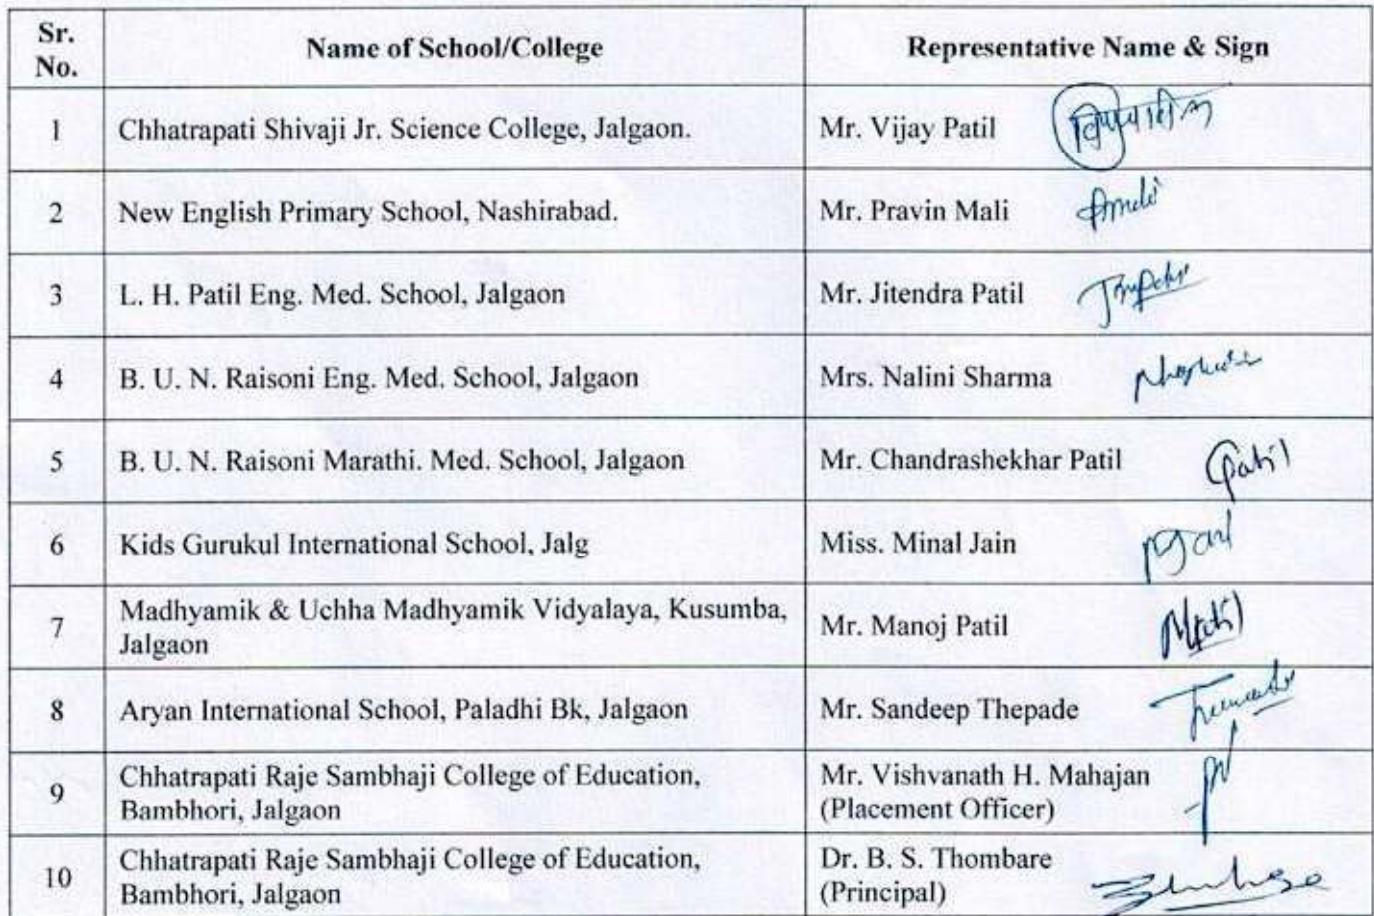 Sr.
No.
Name of School/College
Representative Name & Sign
1
Chhatrapati Shivaji Jr. Science College, Jalgaon.
Mr. Vijay Patil
2
New English Primary School, Nashirabad.
Mr. Pravin Mali
3
L. H. Patil Eng. Med. School, Jalgaon
Mr. Jitendra Patil
4
B. U. N. Raisoni Eng. Med. School, Jalgaon
Mrs. Nalini Sharma
5
B. U. N. Raisoni Marathi. Med. School, Jalgaon
Mr. Chandrashekhar Patil
Patil
6
Kids Gurukul International School, Jalg
Miss. Minal Jain
7
Madhyamik & Uchha Madhyamik Vidyalaya, Kusumba,
Jalgaon
Mr. Manoj Patil
8
Aryan International School, Paladhi Bk, Jalgaon
Mr. Sandeep Thepade
9
Chhatrapati Raje Sambhaji College of Education,
Bambhori, Jalgaon
Mr. Vishvanath H. Mahajan
(Placement Officer)
10
Chhatrapati Raje Sambhaji College of Education,
Bambhori, Jalgaon
Dr. B. S. Thombare
(Principal)